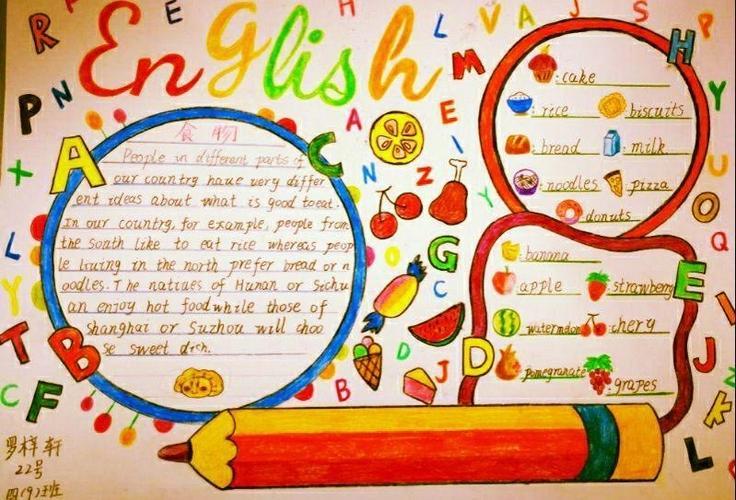 English
食物
People in different parts of
our country have very differ
ent ideas about what is good to eat.
In our country, for example, people from
the south like to eat rice whereas peop
le living in the north prefer bread or n
oodles. The natives of Hunan or Sichu
an enjoy hot food while those of
shanghai or Suzhou will choo
se sweet dich.
cake
rice
biscuits
bread
milk
noodles
pizza
donuts
banana
apple
strawberry
watermelon
chery
pomegranate
grapes
22号
四(9)班